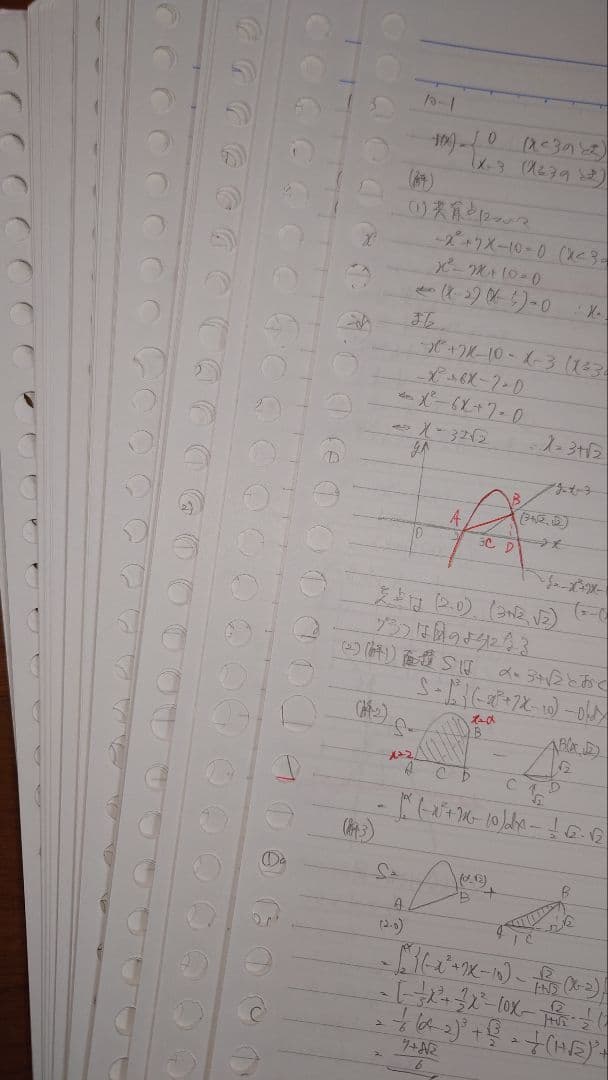 10-1
f(x)={ 0 (x<3のとき)
x-3 (x≧3のとき)
(解)
(1) 共有点について
-x²+7x-10=0 (x<3の
x²-7x+10=0
⇔(x-2)(x-5)=0 ∴x=
また
-x²+7x-10=x-3 (x≧3
-x²+6x-7=0
⇔x²-6x+7=0
⇔x=3±√2 ∴x=3+√2
y
y=x-3
B
(3+√2,√2)
A
O 3 C D x
y=-x²+7x-
共有点は (2,0), (3+√2,√2)
グラフは図のようになる
(2)(解1) 面積Sは α=3+√2とおく
S=∫₂³{(-x²+7x-10)-0}dx
(解2)
x=α
S=
B
B(α,√2)
x=2
√2
A C D - C D
√2
=∫₂^α(-x²+7x-10)dx-1/2・√2・√2
(解3)
S=
(α,√2)
A B + B
√2
(2,0) A 1 C
=∫₂^α{(-x²+7x-10)-√2/(1+√2)(x-2)
=[-1/3x³+7/2x²-10x-√2/(1+√2)・1/2(
=1/6(α-2)³+√2/2=1/6(1+√2)³+
=(7+8√2)/6